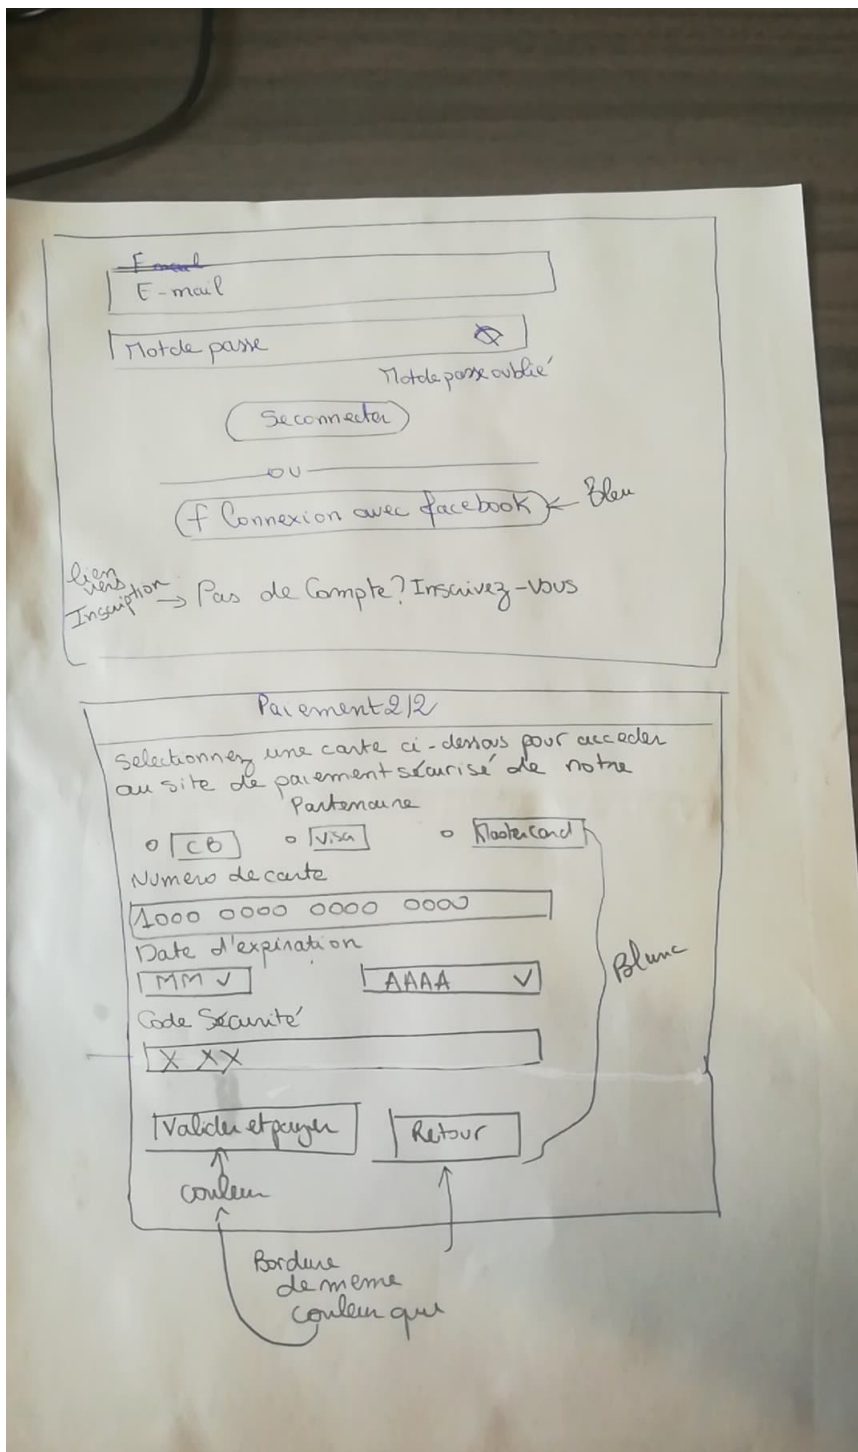 E-mail
E-mail
Mot de passe
Mot de passe oublié
Se connecter
OU
f Connexion avec facebook
Bleu
lien
vers
Inscription → Pas de Compte? Inscrivez-vous
Paiement 2/2
Selectionnez une carte ci-dessous pour acceder
au site de paiement sécurisé de notre
Partenaire
CB Visa Mastercard
Numero de carte
1000 0000 0000 0000
Date d'expiration
MM AAAA
Blanc
Code Sécurité
X XX
Valider et payer Retour
couleur
Bordure
de meme
couleur que